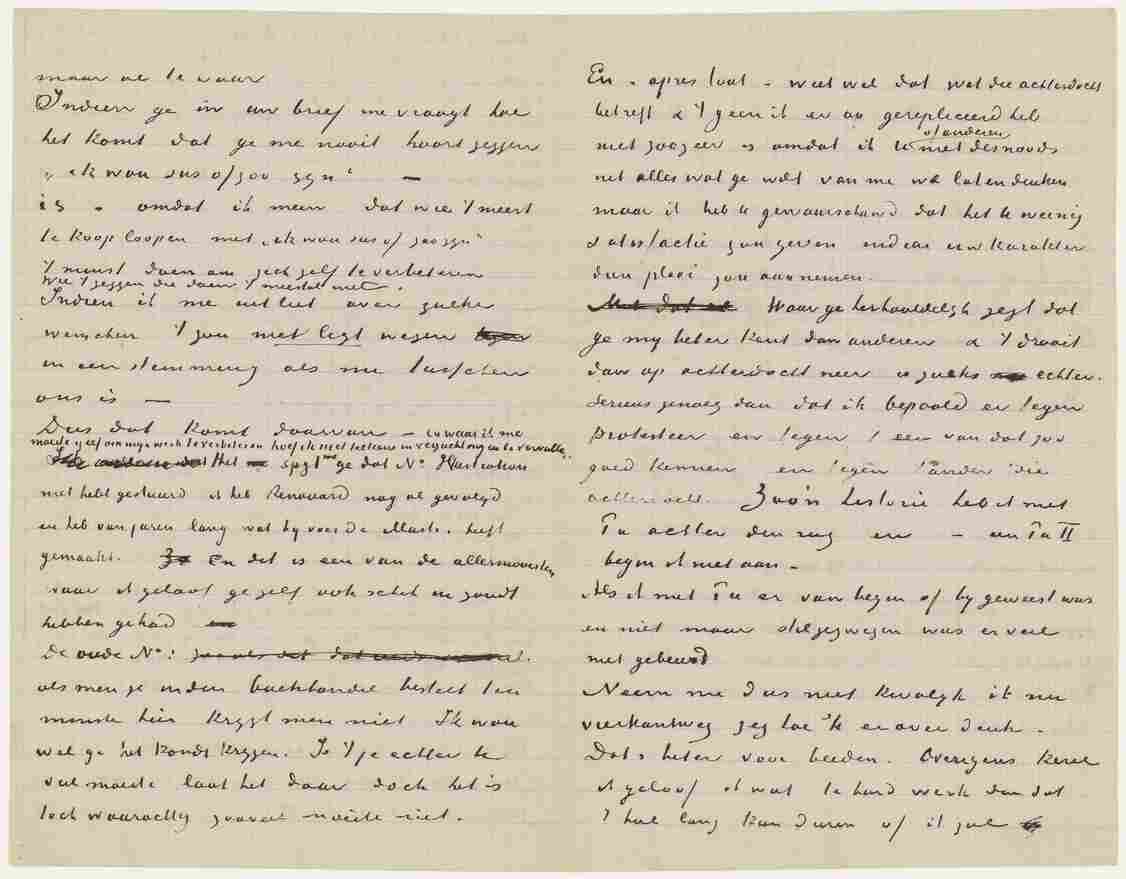 maar al te waar
Indien ge in uw brief me vraagt hoe
het komt dat ge me nooit hoort zeggen
„ik wou zus of zoo zijn"
is - omdat ik meen dat wie 't meest
te koop loopen met „ik wou zus of zoo zijn"
't minst doen om zich zelf te verbeteren
Wie 't zeggen die doen 't meestal niet.
Indien ik me uitliet over zulke
wenschen 't zou niet ligt wezen
in een stemming als die tusschen
ons is —
Dus dat komt daarvan — en waar ik me
moeite geef om mijn werk te verbeteren hoef ik niet telkens in verzuchtingen te vervallen.
Het spijt me ge dat No. Illustration
niet hebt gestuurd ik heb Renouard nog al gevolgd
en heb van jaren lang wat hij voor de Illustr. heeft
gemaakt. En dit is een van de allermooisten
waar ik geloof ge zelf ook schik in zoudt
hebben gehad
De oude No:
als men ze in den boekhandel bestelt ten
minste hier krijgt men niet Ik wou
wel ge het kondt krijgen. Is 't je echter te
veel moeite laat het daar doch het is
toch waarachtig zooveel moeite niet.
En - apres tout - weet wel dat wat die achterdocht
betreft & 't geen ik er op gerepliceerd heb
of anderen
niet zoozeer is omdat ik U niet desnoods
niet alles wat ge wilt van me wil laten denken
maar ik heb U gewaarschuwd dat het U weinig
satisfactie zou geven indien uw karakter
dien plooi zou aannemen.
Waar ge herhaaldelijk zegt dat
ge mij beter kent dan anderen & 't draait
dan op achterdocht neer is zulks echter.
serieus genoeg dan dat ik bepaald er tegen
protesteer en tegen 't een van dat zoo
goed kennen en tegen 't ander die
achterdocht. Zoo'n historie heb ik met
Pa achter den rug en — een Pa II
begin ik niet aan —
Als ik met Pa er van begin of bij geweest was
en niet maar stilgezwegen was er veel
niet gebeurd
Neem me dus niet kwalijk ik nu
vierkantweg zeg hoe 'k er over denk.
Dat's beter voor beiden. Overigens kerel
ik geloof ik wat te hard werk dan dat
't heel lang kan duren of ik zal